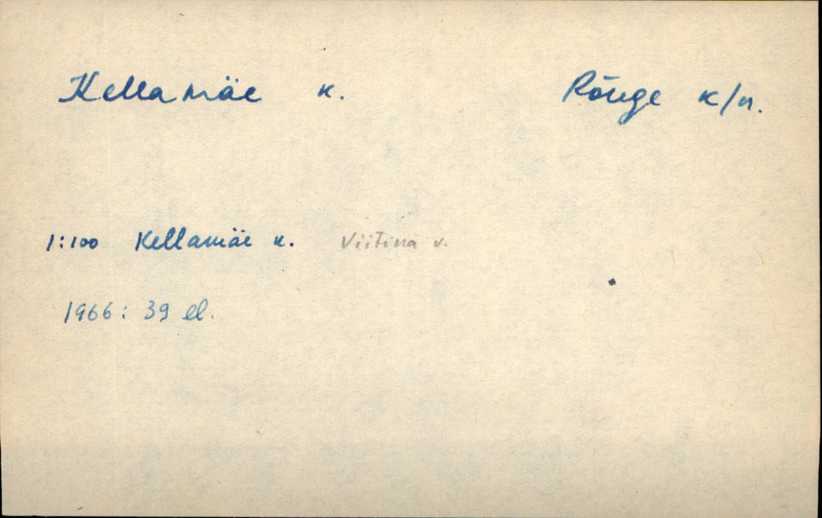 Kellamäe k. Rõuge k/n.
1:100 Kellamäe k. Viitina v.
1966: 39 el.